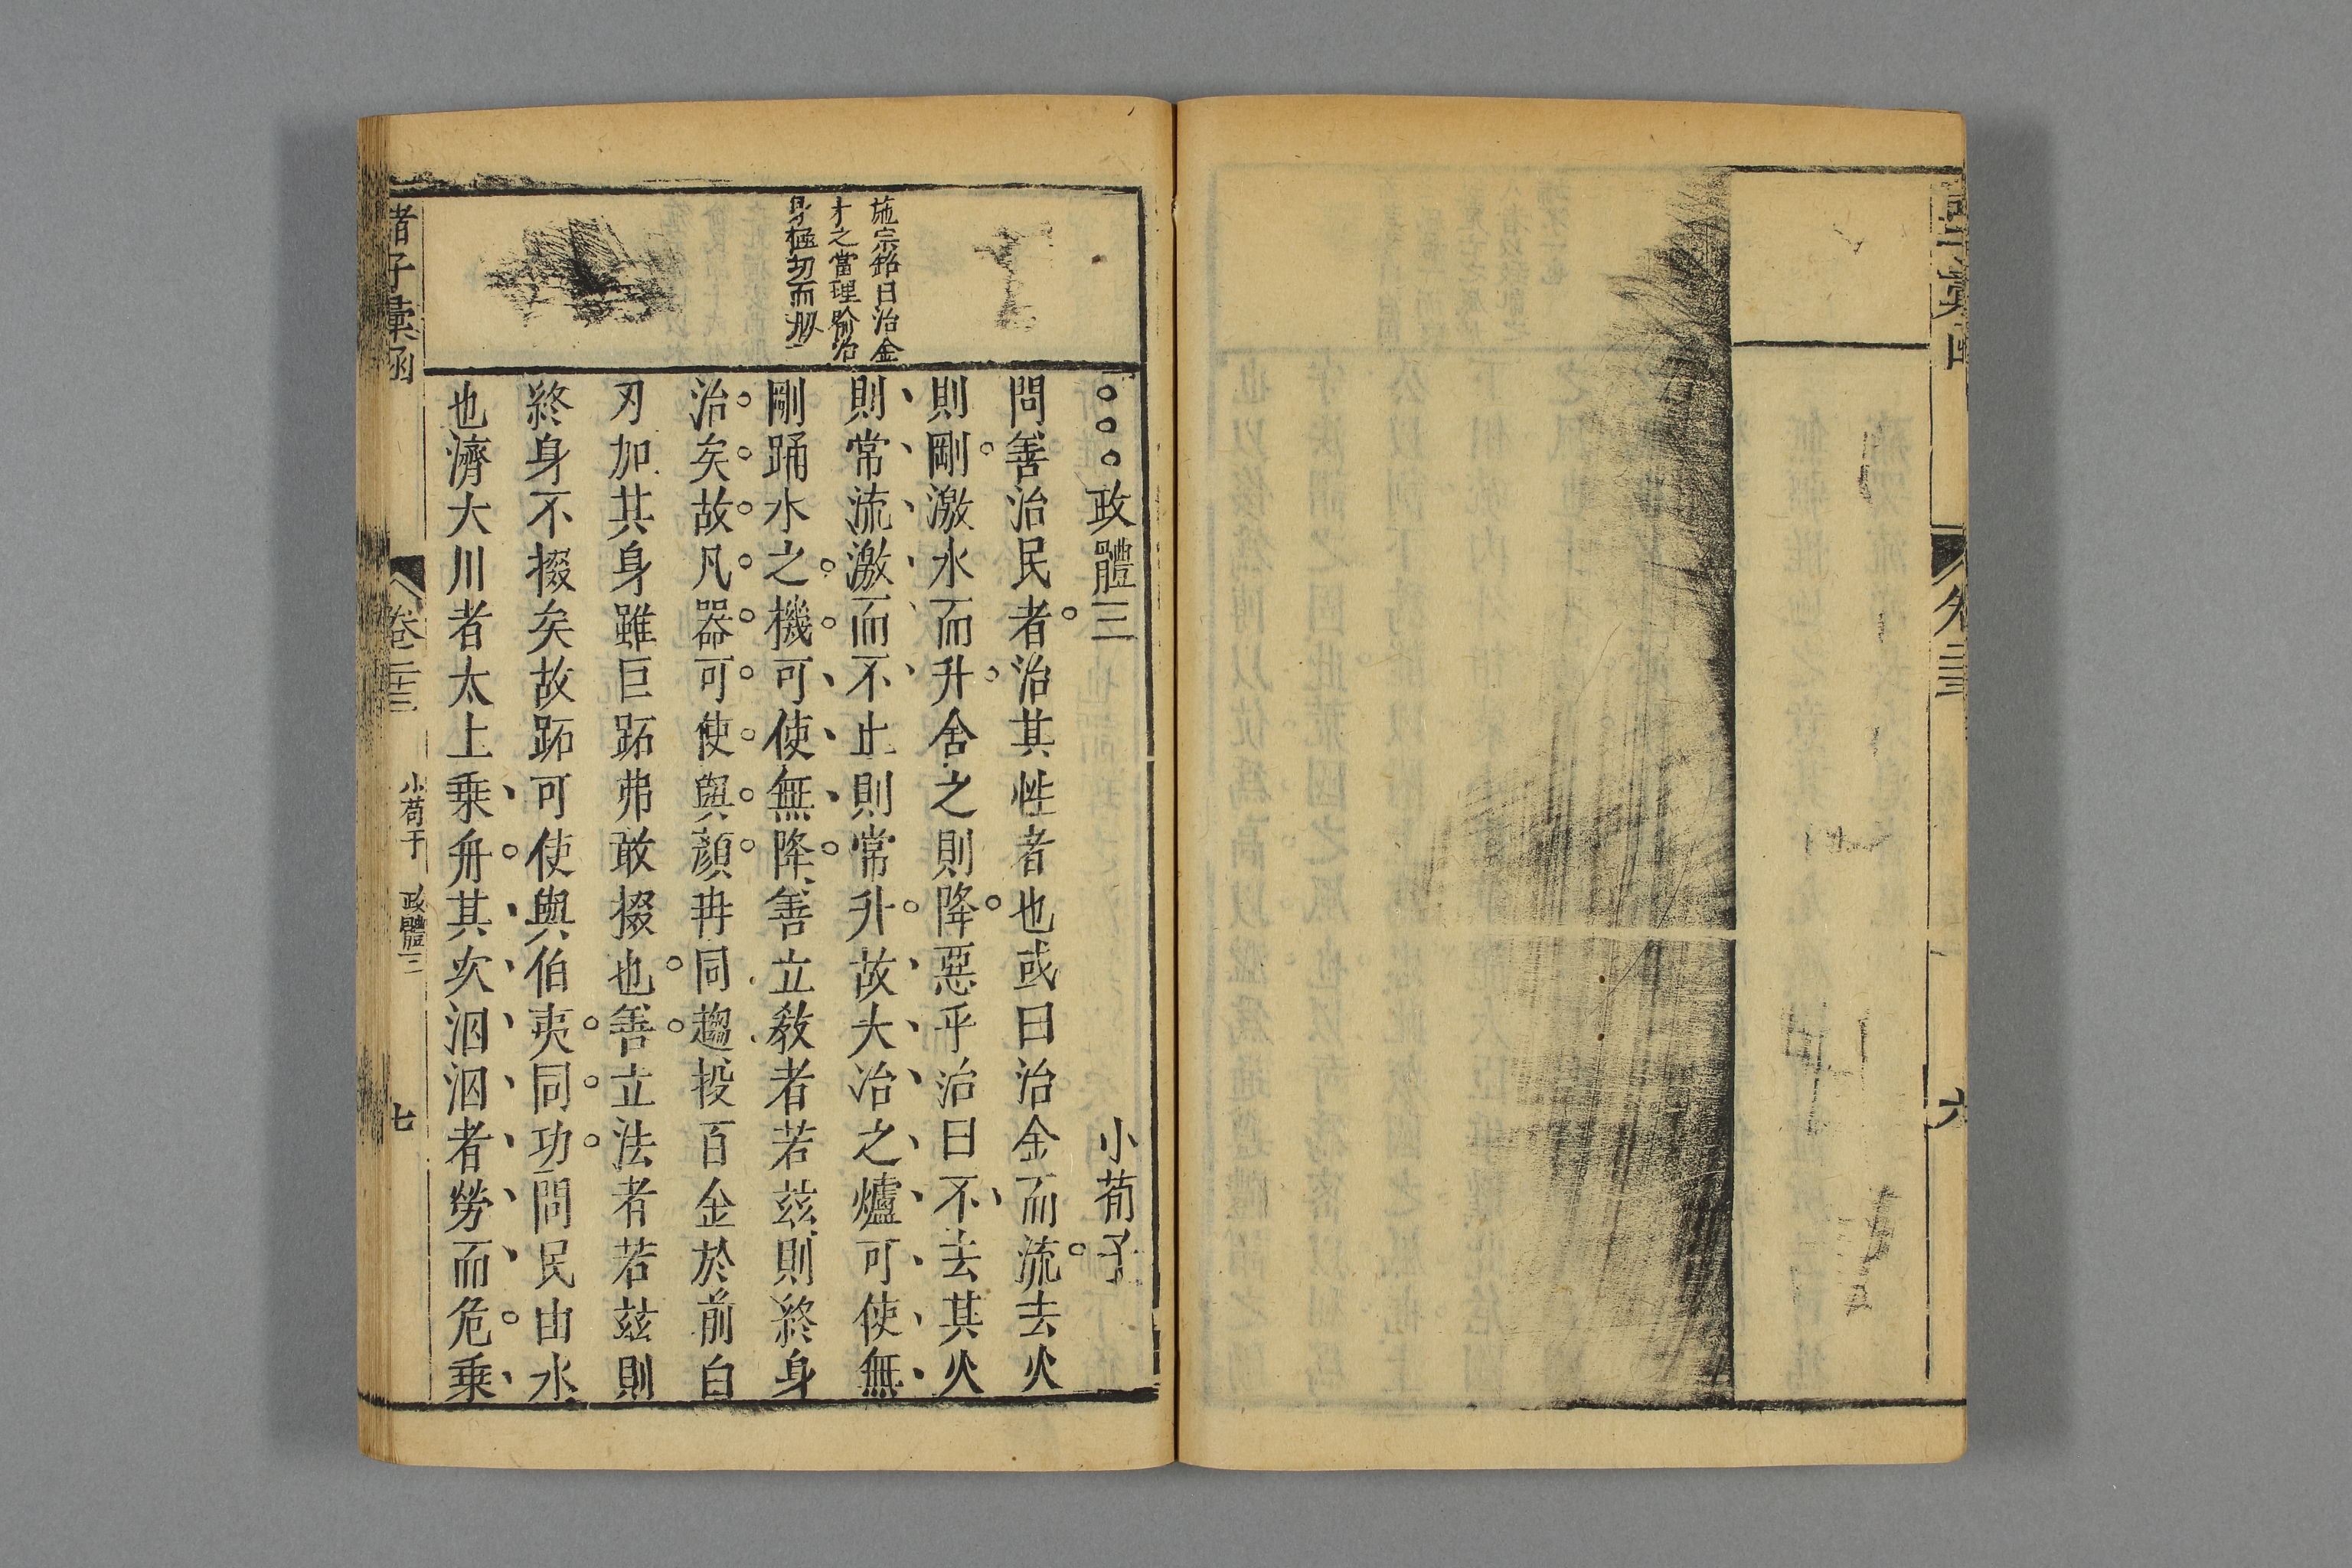 六
政體三 小荀子
問善治民者治其性者也或曰治金而流去火
則剛激水而升舍之則降惡乎治曰不去其火
則常流激而不止則常升故大冶之爐可使無
剛踊水之機可使無降善立教者若茲則終身
治矣故凡器可使與顏冉同趨投百金於前白
刃加其身雖巨跖弗敢掇也善立法者若茲則
終身不掇矣故跖可使與伯夷同功問民由水
也濟大川者太上乗舟其次泅泅者勞而危乗
施宗銘曰治金
才之當理喻治
身極切而
諸子彙函 卷二十三 小荀子 政體三 七